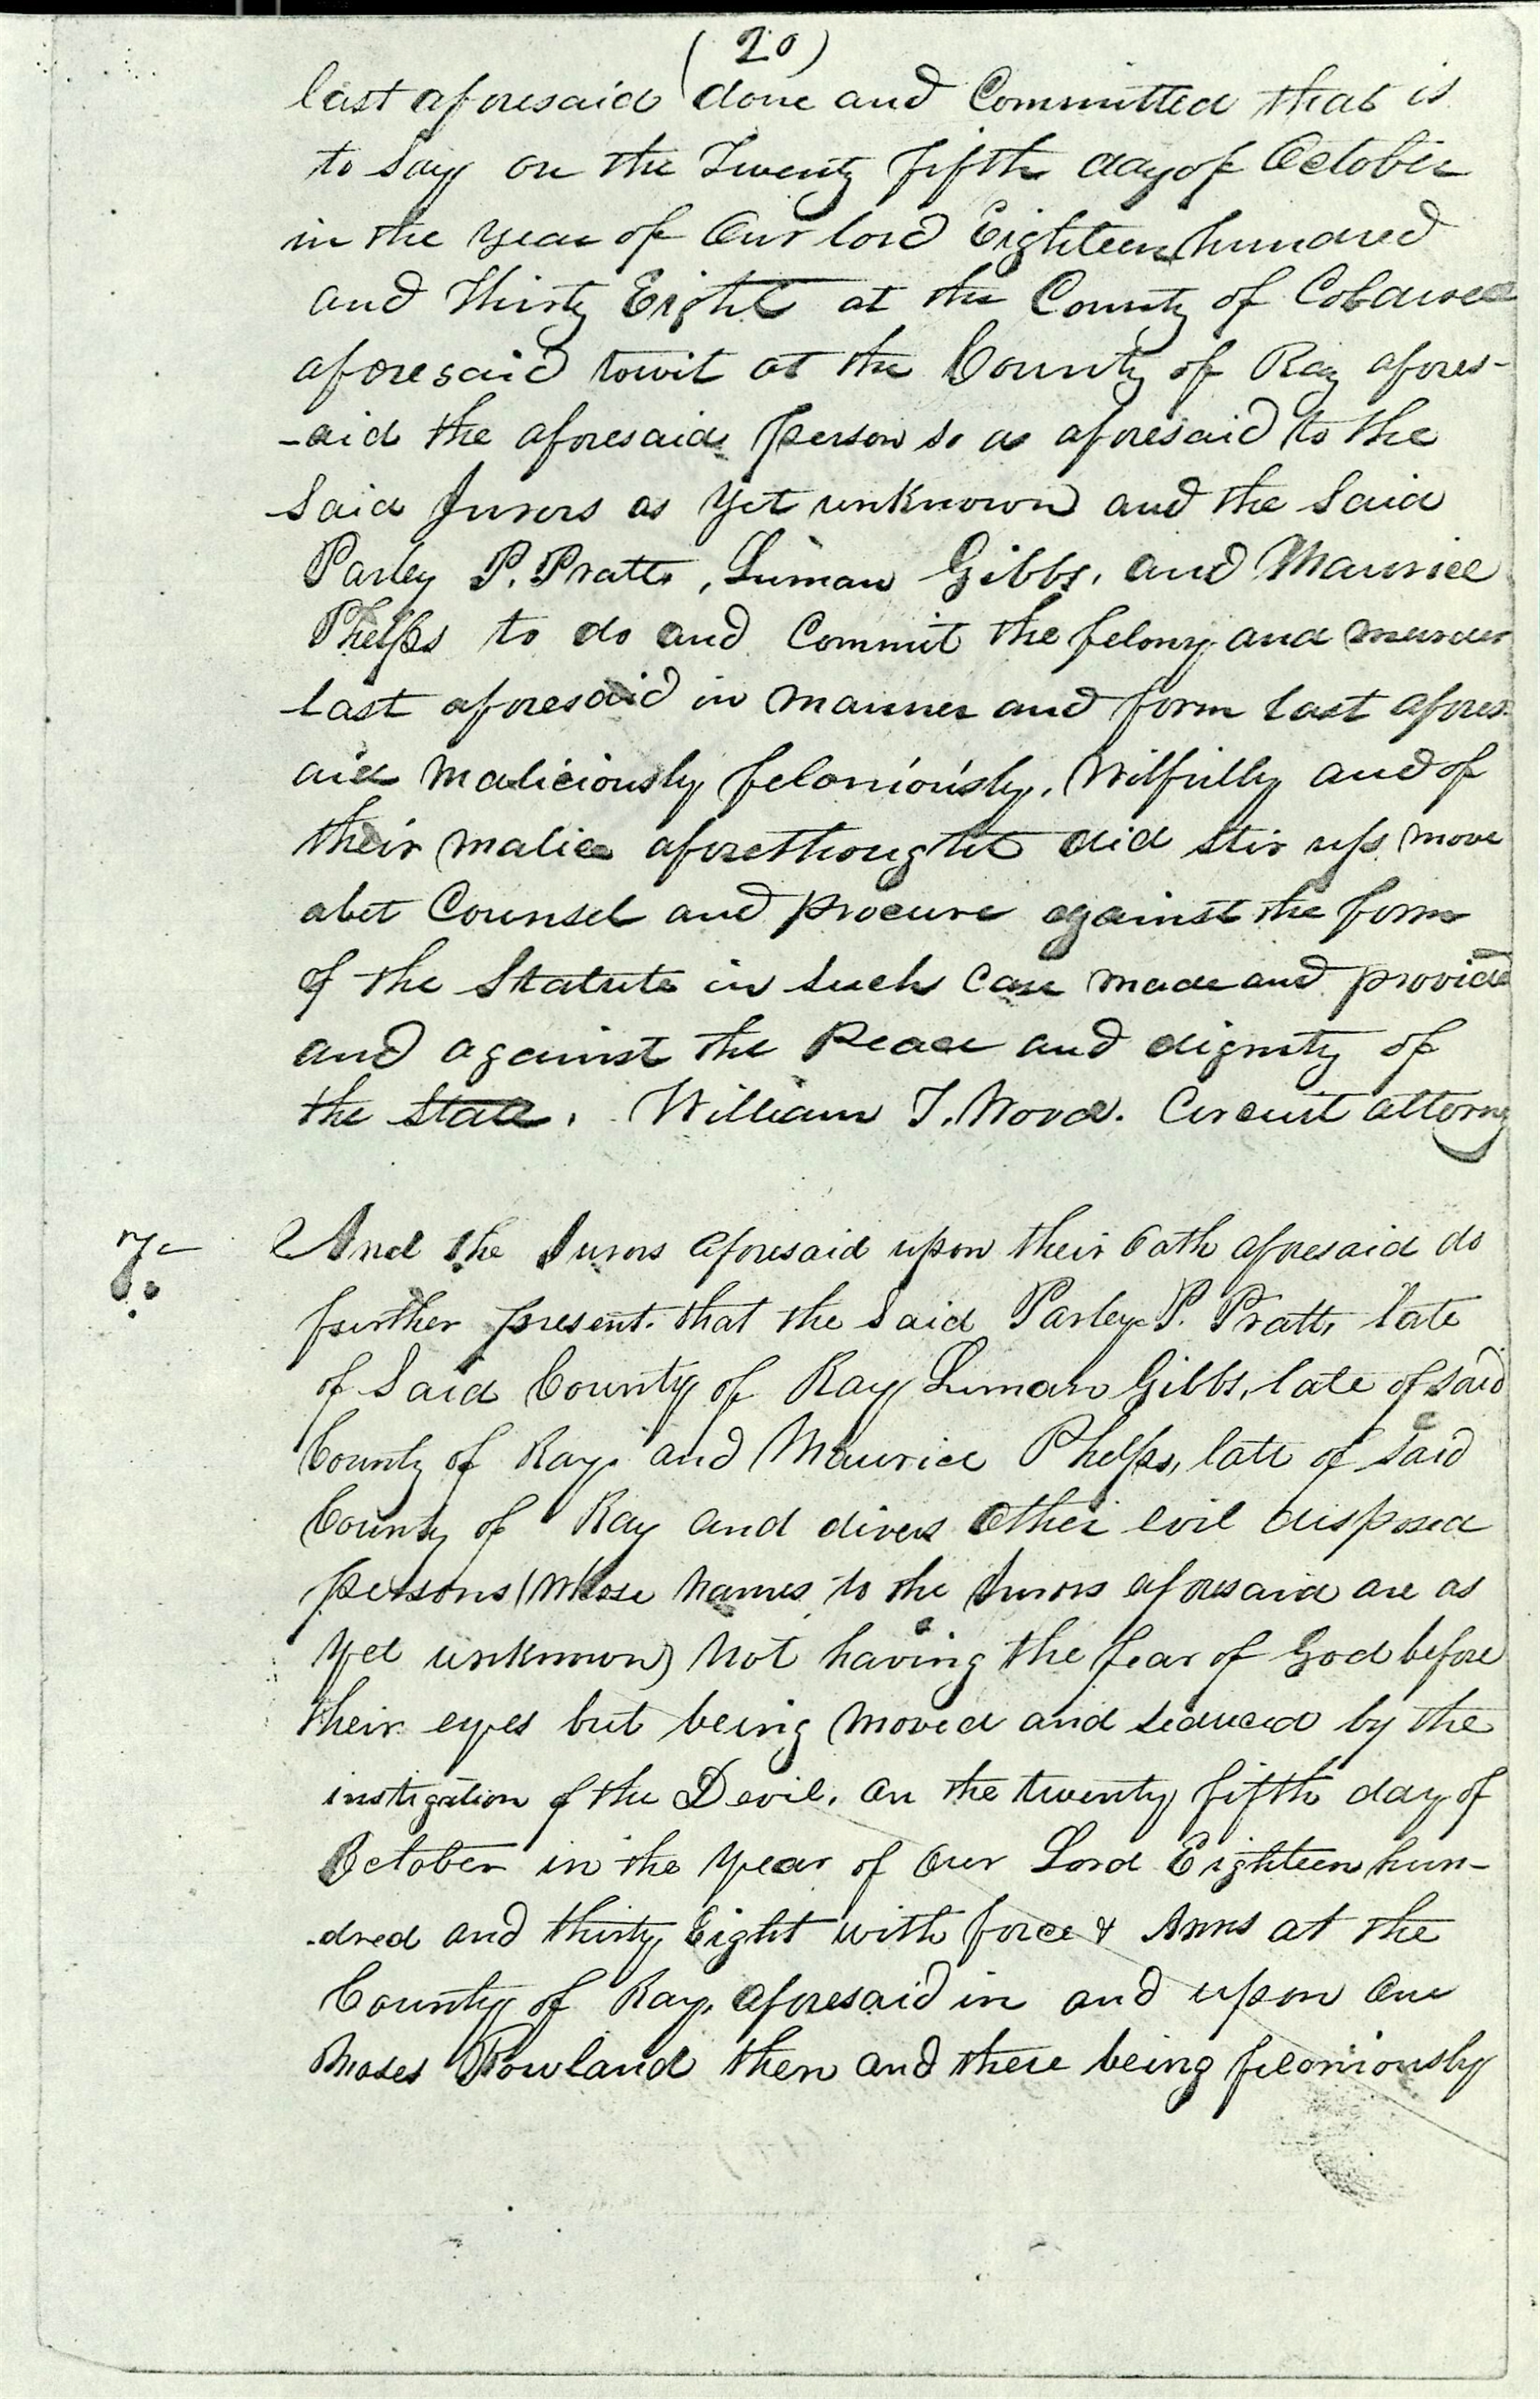 (20)
last aforesaid done and Committed that is
to Say on the Twenty fifth day of October
in the year of Our lord Eighteen hundred
and Thirty Eight at the County of
aforesaid towit at the County of Ray afores-
-aid the aforesaid person so as aforesaid to the
Said Jurors as yet unknown and the Said
Parley P. Pratt, Luman Gibbs, and Maurice
Phelps to do and Commit the felony and murder
last aforesaid in manner and form last afores-
aid Maliciously feloniously, Wilfully and of
their malice aforethought did stir up move
abet Counsel and procure against the form
of the Statute in Such Case made and provided
and against the Peace and dignity of
the State. William T. Wood. Circuit attorny
7.
And the Jurors aforesaid upon their Oath aforesaid do
further present. that the Said Parley P. Pratt, late
of Said County of Ray Luman Gibbs, late of Said
County of Ray. and Maurice Phelps, late of Said
County of Ray and divers Other evil disposed
persons (Whose names to the Jurors aforesaid are as
yet unknown) Not having the fear of God before
their eyes but being Moved and seduced by the
instigation of the Devil. on the twenty fifth day of
October in the Year of Our Lord Eighteen hun-
-dred and thirty Eight with force & Arms at the
County of Ray, aforesaid in and upon One
Moses Rowland then and there being feloniously